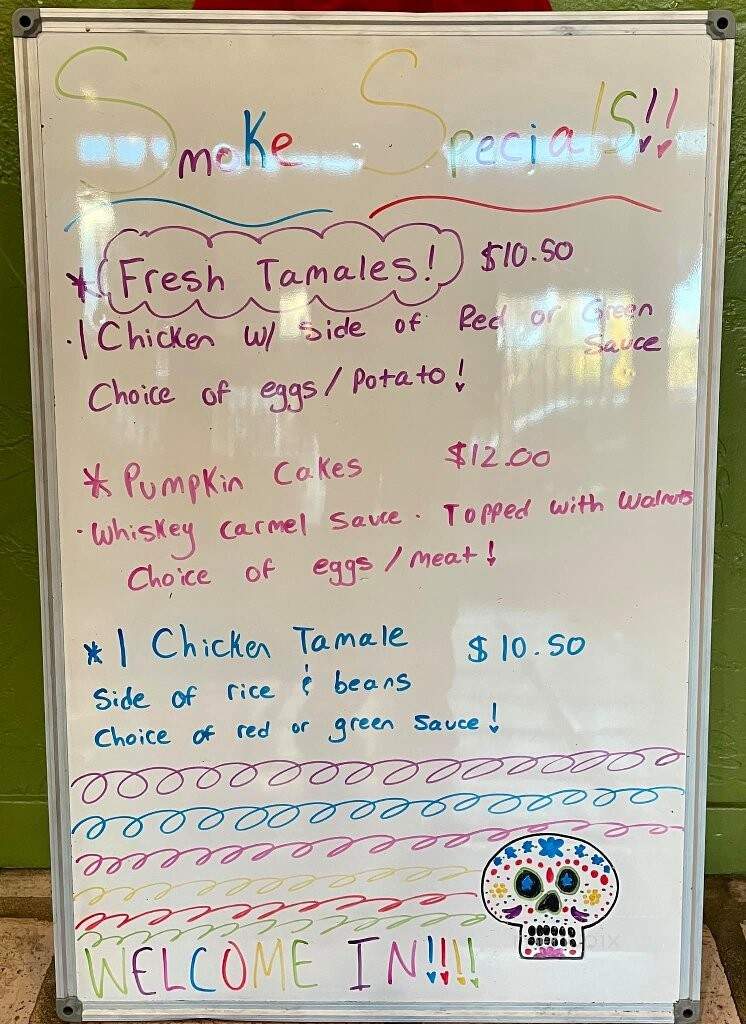 Smoke Specials!!
* Fresh Tamales! $10.50
· 1 Chicken w/ side of Red or Green
Sauce
Choice of eggs/potato!
* Pumpkin Cakes $12.00
· Whiskey Carmel Sauce · Topped with Walnuts
Choice of eggs/meat!
* 1 Chicken Tamale $10.50
Side of rice & beans
Choice of red or green Sauce!
WELCOME IN!!!!